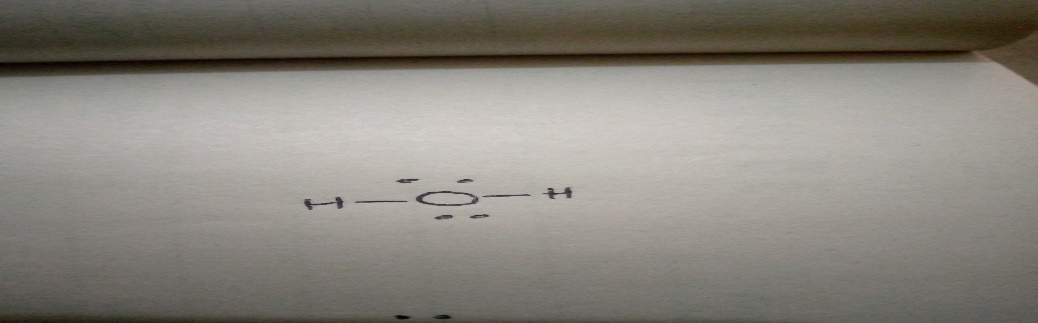 H — O — H